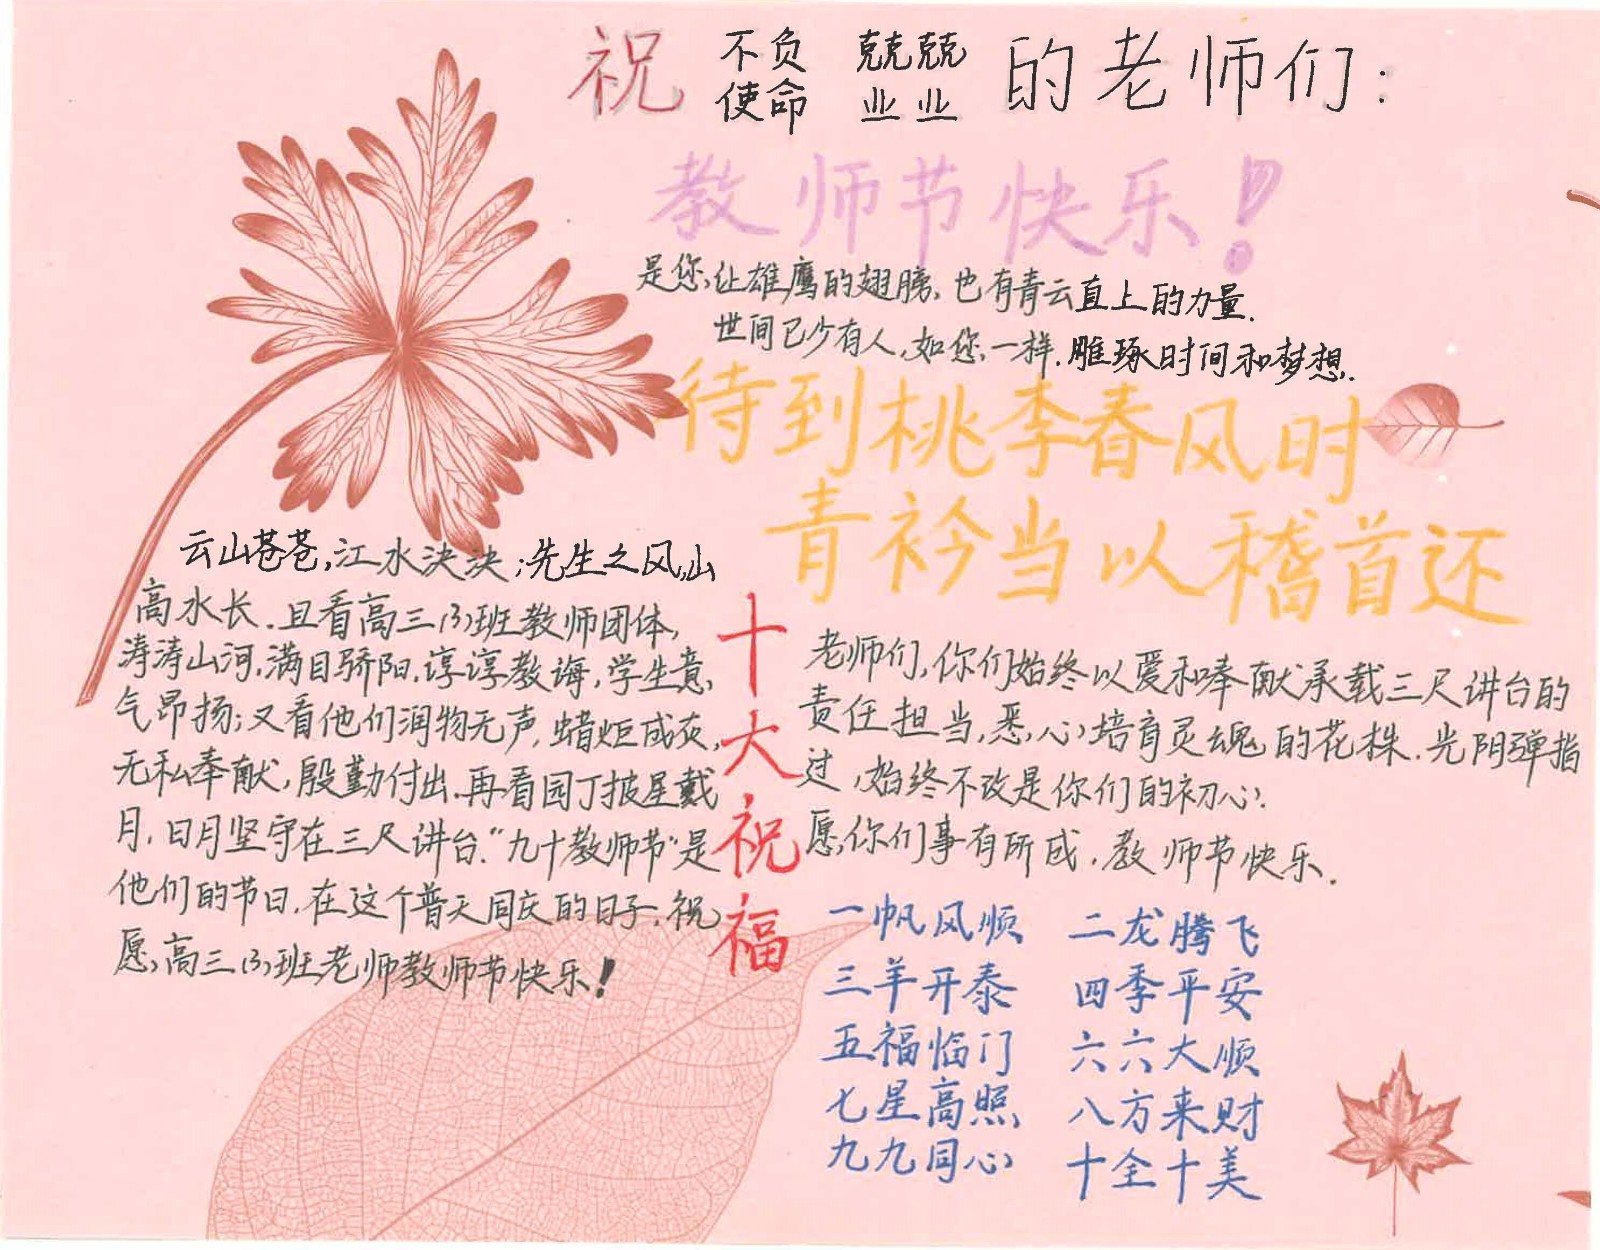 祝 不负使命 兢兢业业 的老师们：
教师节快乐！
是您，让雄鹰的翅膀，也有青云直上的力量.
世间已少有人，如您，一样.雕琢时间和梦想.
待到桃李春风时
青衿当以稽首还
云山苍苍，江水泱泱；先生之风，山
高水长.且看高三(3)班教师团体，
涛涛山河，满目骄阳，谆谆教诲，学生意
气昂扬；又看他们润物无声，蜡炬成灰，
无私奉献，殷勤付出.再看园丁披星戴
月，日月坚守在三尺讲台.“九十教师节”是
他们的节日.在这个普天同庆的日子，祝
愿，高三(3)班老师教师节快乐！
十大祝福
老师们，你们始终以爱和奉献承载三尺讲台的
责任担当，悉心培育灵魂的花株.光阴弹指
过，始终不改是你们的初心.
愿，你们事有所成，教师节快乐.
一帆风顺 二龙腾飞
三羊开泰 四季平安
五福临门 六六大顺
七星高照 八方来财
九九同心 十全十美